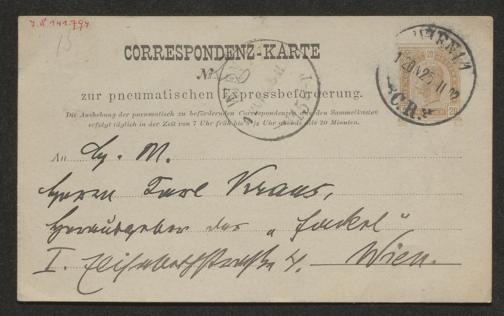 I.N 141.794
CORRESPONDENZ-KARTE
zur pneumatischen Expressbeförderung.
Die Aushebung der pneumatisch zu befördernden Correspondenzen aus den Sammelkasten
erfolgt täglich in der Zeit von 7 Uhr früh bis 9 Uhr abends alle 20 Minuten.
An
Herrn Karl Kraus,
Herausgeber der „Fackel“
I. Elisabethstraße 4. Wien.
WIEN 1/1
20